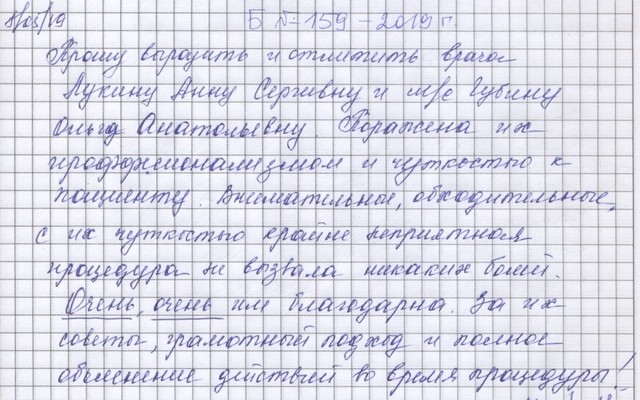 8/05/19 Б № 159 - 2019 г.
Прошу выразить и отметить врача
Лукину Анну Сергивну и м/с Губину
Ольгу Анатольевну. Поражена их
профессионализмом и чуткостью к
пациенту. Внимательные, обходительные,
с их чуткостью крайне неприятная
процедура не вызвала никаких болей.
Очень, очень им благодарна. За их
советы, грамотный подход и полное
объяснение действий во время процедуры!